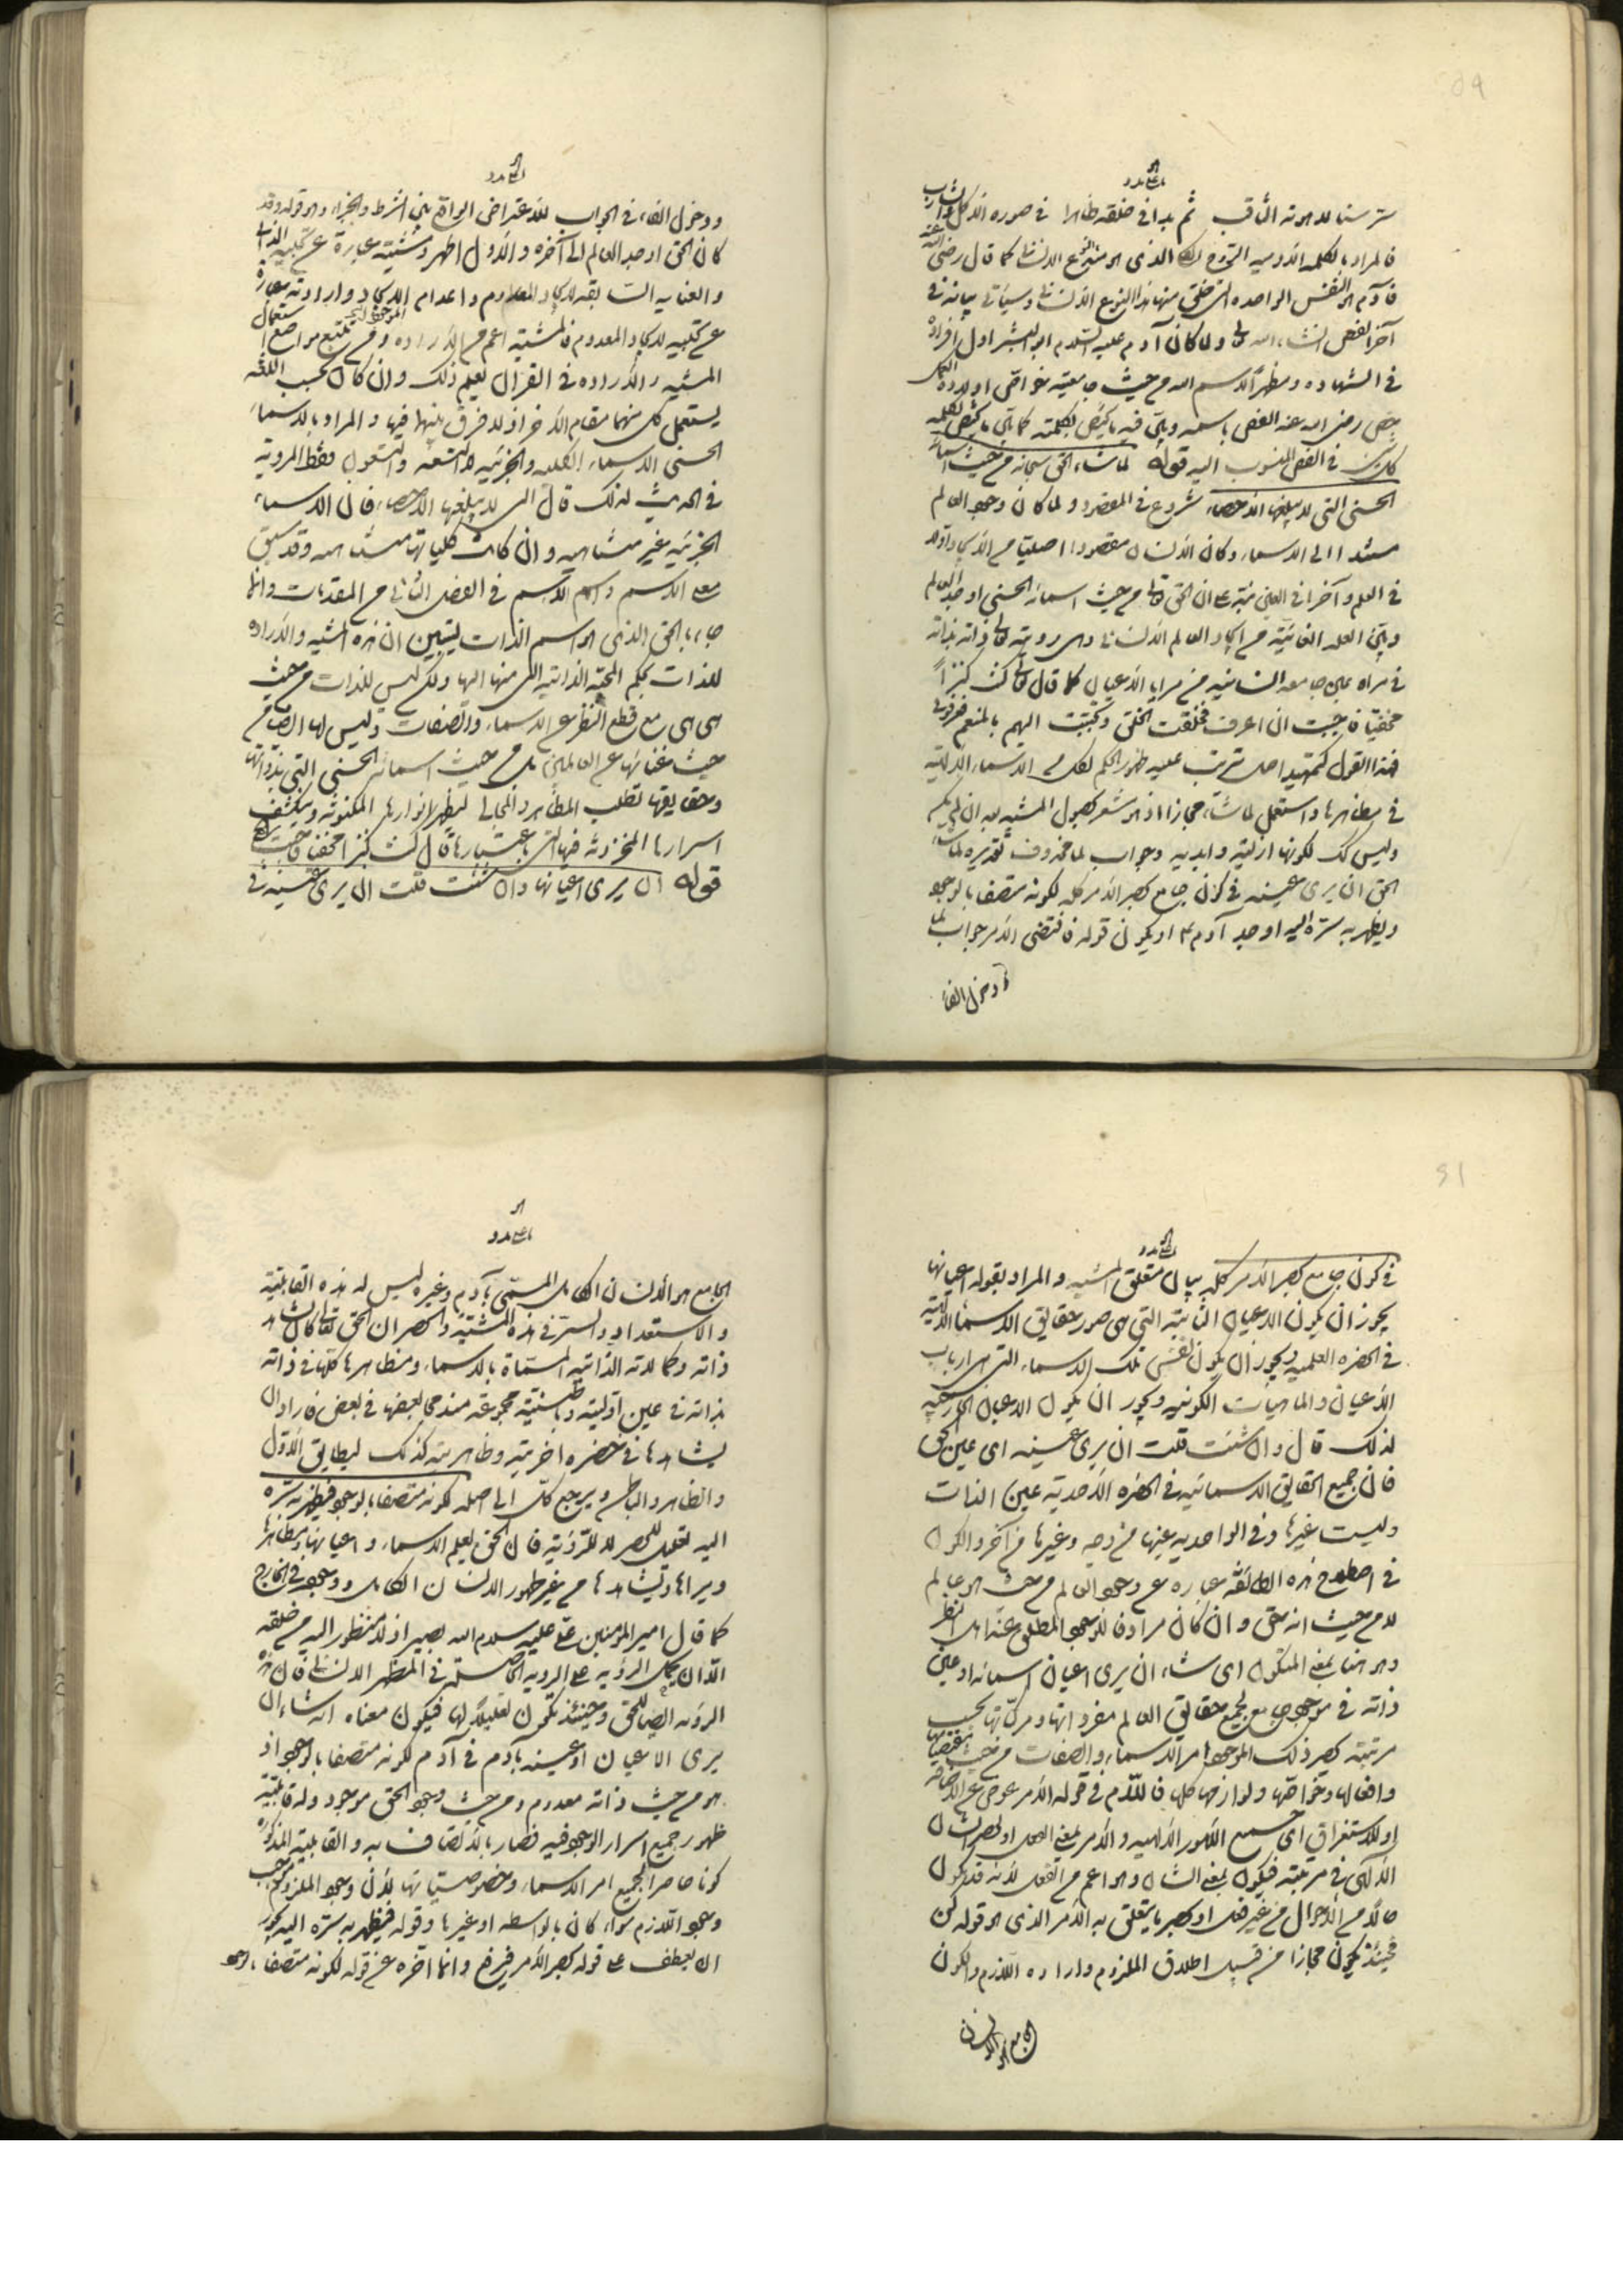 ستر سنا لاهوته الثاقب ثم بدا في خلقه ظاهرا في صورة الآكل والشارب
فالمراد بالكلمة الآدمية الروح الكلي الذي هو مبدأ النوع الانساني كما قال رضي الله عنه
فآدم هو النفس الواحدة التي خلق منها هذا النوع الانساني وسيأتي بيانه في
آخر الفص انشاء الله تعالى ولما كان آدم عليه السلام ابو البشر اول افراده
في الشهادة ومظهرا للاسم الله من حيث جامعيته خواص اولاده الكمل
خص رضي الله عنه الفص باسمه وبين فيه ما يختص بكلمته كما بين ما يختص بكلمة
كل نبي في الفص المنسوب اليه قوله لما شاء الحق سبحانه من حيث اسماؤه
الحسنى التي لا يبلغها الاحصاء شروع في المقصود ولما كان وجود العالم
مستندا الى الاسماء وكان الانسان مقصودا اصليا من الايجاد اولا
في العلم وآخرا في العين نبه على ان الحق تعالى من حيث اسمائه الحسنى اوجد العالم
وبين العلة الغائية من ايجاد العالم الانساني وهي رويته تعالى ذاته بذاته
في مرآة عين جامعة انسانية من مرايا الاعيان كما قال تعالى كنت كنزا
مخفيا فاحببت ان اعرف فخلقت الخلق وتحببت اليهم بالنعم فعرفوني
فهذا القول كتمهيد اصل ترتب عليه ظهور الحكم لكل من الاسماء الالهية
في مظاهرها واستعمل لما شاء مجازا اذ هو مشعر بحصول المشية بعد ان لم يكن
وليس كذلك لكونها ازلية وابدية وجواب لما محذوف تقديره لما شاء
الحق ان يرى عينه في كون جامع يحصر الامر كله لكونه متصفا بالوجود
ويظهر به سره اليه اوجد آدم ع او يكون قوله فاقتضى الامر جواب لما
ودخول الفاء
ودخول الفاء في الجواب للاعتراض الواقع بين الشرط والجزاء وهو قوله وقد
كان الحق اوجد العالم الى آخره والاول اظهر ومشيته عبارة عن تجليه الذاتي
والعناية السابقة لايجاد المعدوم واعدام الموجود وارادته عبارة
عن تجليه لايجاد المعدوم فالمشية اعم من الارادة ومن تتبع مواضع استعمال
المشية والارادة في القرآن يعلم ذلك وان كان بحسب اللغة
يستعمل كل منهما مقام الآخر اذ لا فرق بينهما فيها والمراد بالاسماء
الحسنى الاسماء الكلية والجزئية لا التسعة والتسعون فقط المروية
في الحديث لذلك قال التي لا يبلغها الاحصاء فان الاسماء
الجزئية غير متناهية وان كانت كلياتها متناهية وقد سبق
معنى الاسم واسم الاسم في الفصل الثاني من المقدمات وانما
جاء بالحق الذي هو اسم الذات ليتبين ان هذه المشية والارادة
للذات بحكم المحبة الذاتية التي منها اليها ولكن ليس للذات من حيث
هي هي مع قطع النظر عن الاسماء والصفات وليس لها ايضا من
حيث غنائها عن العالمين بل من حيث اسمائه الحسنى التي بذواتها
وحقايقها تطلب المظاهر والمجالي لتظهر انوارها المكنونة وتنكشف
اسرارها المخزونة فيها التي باعتبارها قال كنت كنزا مخفيا فاحببت
قوله ان يرى اعيانها وان شئت قلت ان يرى عينه في
في كون جامع يحصر الامر كله بيان متعلق المشية والمراد بقوله اعيانها
يجوز ان يكون الاعيان الثابتة التي هي صور حقايق الاسماء الالهية
في الحضرة العلمية ويجوز ان يكون نفس تلك الاسماء التي هي ارباب
الاعيان والماهيات الكونية ويجوز ان يكون الاعيان الخارجية
لذلك قال وان شئت قلت ان يرى عينه اي عين الحق
فان جميع الحقايق الاسمائية في الحضرة الاحدية عين الذات
وليست غيرها وفي الواحدية عينها من وجه وغيرها من آخر والكون
في اصطلاح هذه الطائفة عبارة عن وجود العالم من حيث هو عالم
لا من حيث انه حق وان كان مرادفا للوجود المطلق عند اهل النظر
وهو هنا بمعنى المكون اي شاء ان يرى اعيان اسمائه او عين
ذاته في موجود جامع لجميع حقايق العالم مفرداتها ومركباتها بحسب
مرتبته يحصر ذلك الموجود امر الاسماء والصفات من مقتضياتها
وافعالها وخواصها ولوازمها كلها فاللام في قوله الامر عوض عن الاضافة
او للاستغراق اي جميع الامور الالهية والامر بمعنى الفعل او يحصر الشأن
الالهي في مرتبته فيكون بمعنى الشأن وهو اعم من الفعل لانه قد يكون
حالا من الاحوال من غير فعل او يحصر ما يتعلق به الامر الذي هو قوله كن
فحينئذ يكون مجازا من قبيل اطلاق الملزوم وارادة اللازم والكون
الجامع هو الانسان
الجامع هو الانسان الكامل المسمى بآدم وغيره ليس له هذه القابلية
والاستعداد والسر في هذه المشية والحصر ان الحق تعالى كان يشاهد
ذاته وكمالاته الذاتية المسماة بالاسماء ومظاهرها كلها في ذاته
بذاته في عين اوليته وباطنيته مجموعة مندمجا بعضها في بعض فاراد ان
يشاهدها في حضرة آخريته وظاهريته كذلك ليطابق الاول
والظاهر والباطن ويرجع كل الى اصله لكونه متصفا بالوجود فيظهر به سره
اليه تعليل للحصر لا للرؤية فان الحق يعلم الاسماء واعيانها ومظاهرها
ويراها ويشاهدها من غير ظهور الانسان الكامل ووجوده في الخارج
كما قال امير المؤمنين علي عليه السلام الله بصير اذ لا منظور اليه من خلقه
الا ان يحمل الرؤية على الروية الحاصلة في المظهر الانساني فان هذه
الرؤية ايضا للحق وحينئذ تكون تعليلا لها فيكون معناه انه شاء ان
يرى الاعيان او عينه بآدم في آدم لكونه متصفا بالوجود اذ
هو من حيث ذاته معدوم ومن حيث وجود الحق موجود وله قابلية
ظهور جميع اسرار الوجود فيه فصار بالاتصاف به والقابلية المذكورة
كونا حاصرا لجميع امر الاسماء وخصوصياتها لان وجود الملزوم يوجب
وجود اللازم سواء كان بالواسطة او غيرها وقوله فيظهر به سره اليه يجوز
ان يعطف على قوله يحصر الامر فيرفع وانما آخره عن قوله لكونه متصفا بالوجود